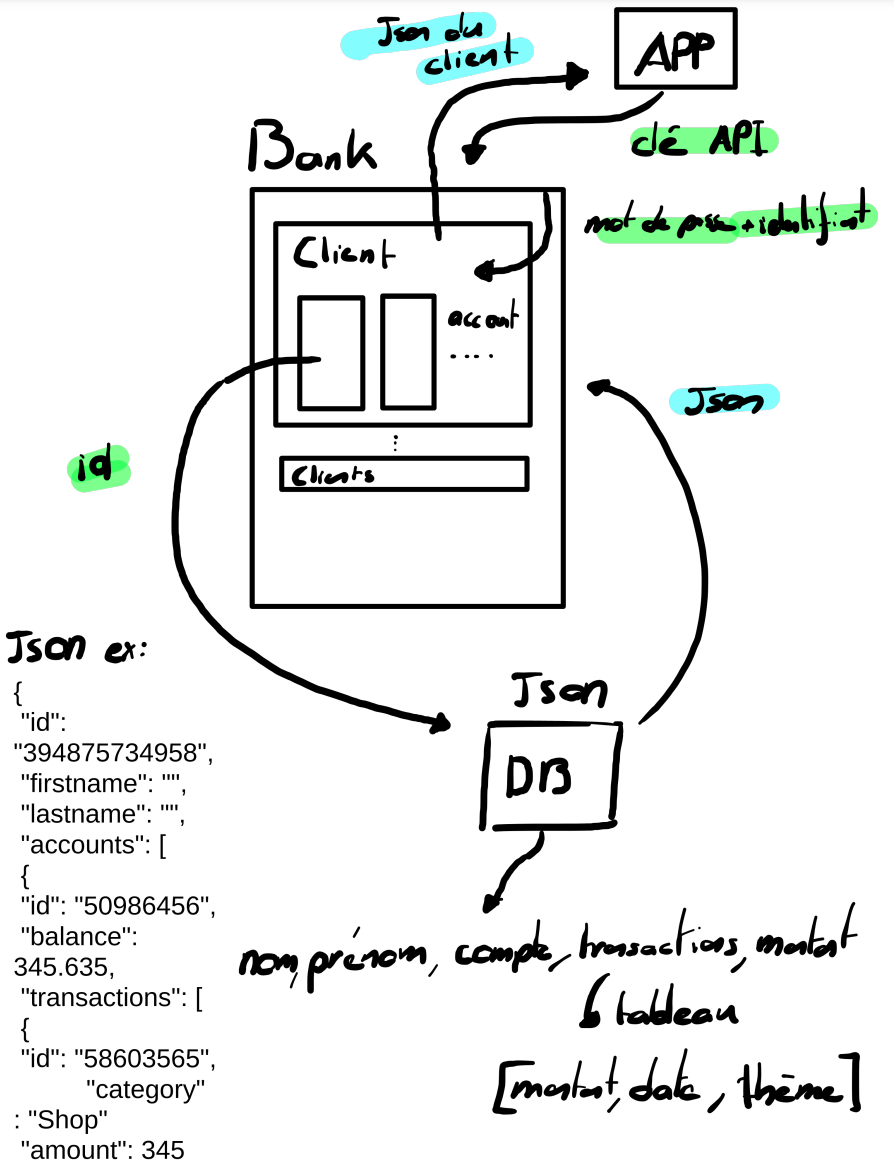 Json du
client
APP
clé API
Bank
mot de passe + identifiant
Client
account
....
Json
id
Clients
Json ex:
{
"id":
"394875734958",
"firstname": "",
"lastname": "",
"accounts": [
{
"id": "50986456",
"balance":
345.635,
"transactions": [
{
"id": "58603565",
"category"
: "Shop"
"amount": 345
Json
DB
nom, prénom, compte, transactions, montant
tableau
[montant, date, thème]